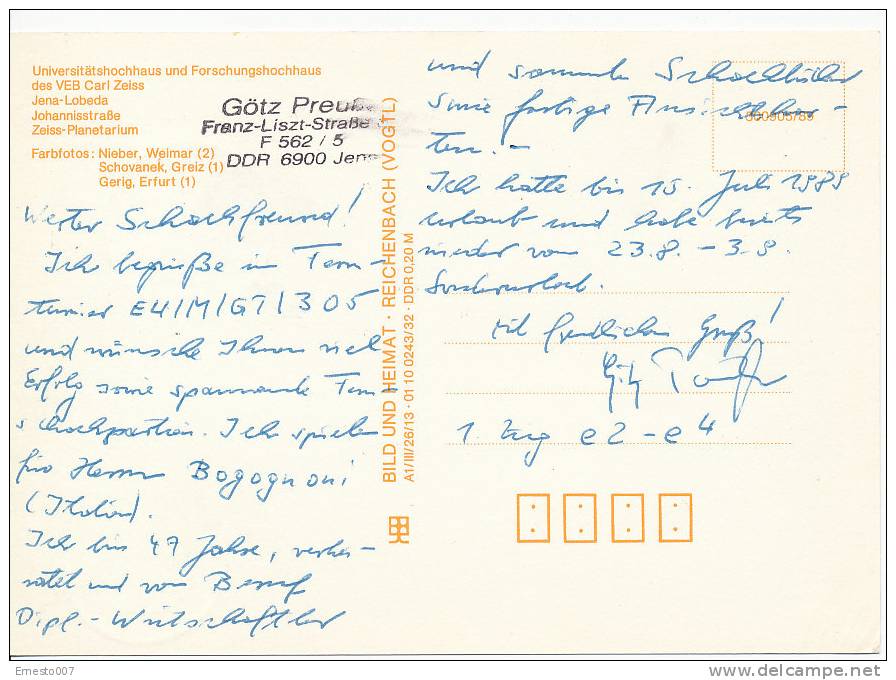 Universitätshochhaus und Forschungshochhaus
des VEB Carl Zeiss
Jena-Lobeda
Johannisstraße
Zeiss-Planetarium
Farbfotos: Nieber, Weimar (2)
Schovanek, Greiz (1)
Gerig, Erfurt (1)
Götz Preuß
Franz-Liszt-Straße
F 562 / 5
DDR 6900 Jena
Werter Schachfreund!
Ich begrüße im Fern-
turnier E4/M/GT/305
und wünsche Ihnen viel
Erfolg sowie spannende Fern-
schachpartien. Ich spiele
für Herrn Bogognoni
(Italien).
Ich bin 47 Jahre, verhei-
ratet und von Beruf
Dipl.-Wirtschaftler
BILD UND HEIMAT · REICHENBACH (VOGTL)
A1/III/26/13 · 01 10 0243/32 · DDR 0,20 M
und sammle Schachbücher
sowie farbige Ansichtskar-
ten.-
Ich hatte bis 15. Juli 1989
Urlaub und habe bereits
wieder vom 23.8. - 3.9.
Sonderurlaub.
Mit freundlichem Gruß!
Götz Preuß
1. Zug e2-e4
300905/89
Ernesto007